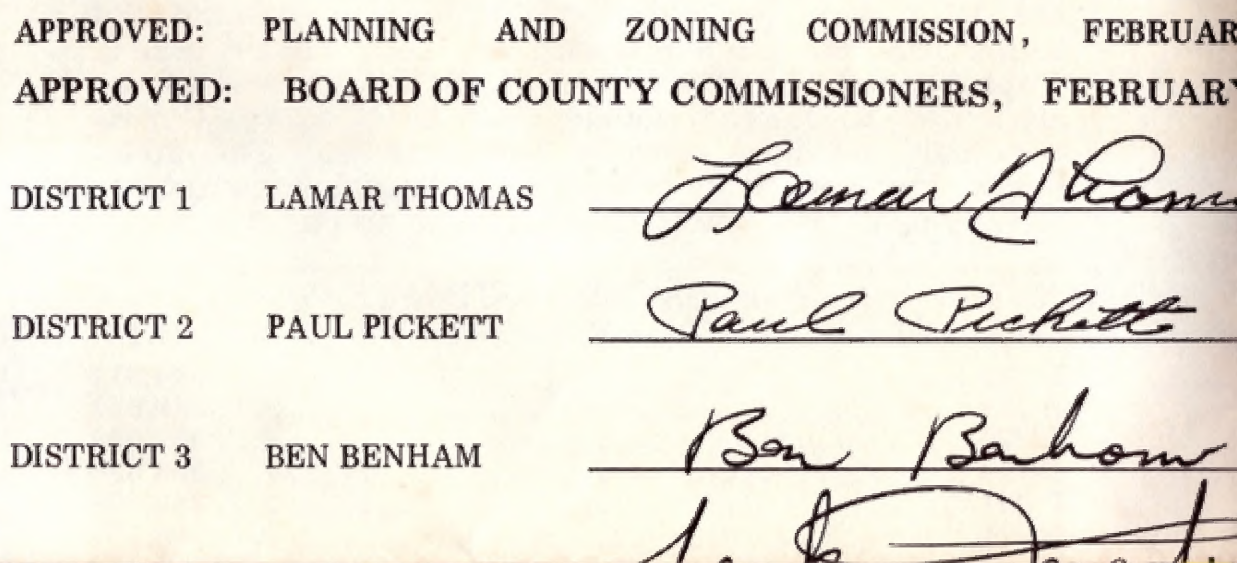 APPROVED: PLANNING AND ZONING COMMISSION, FEBRUAR
APPROVED: BOARD OF COUNTY COMMISSIONERS, FEBRUARY
DISTRICT 1 LAMAR THOMAS Lamar Thom
DISTRICT 2 PAUL PICKETT Paul Pickett
DISTRICT 3 BEN BENHAM Ben Benham